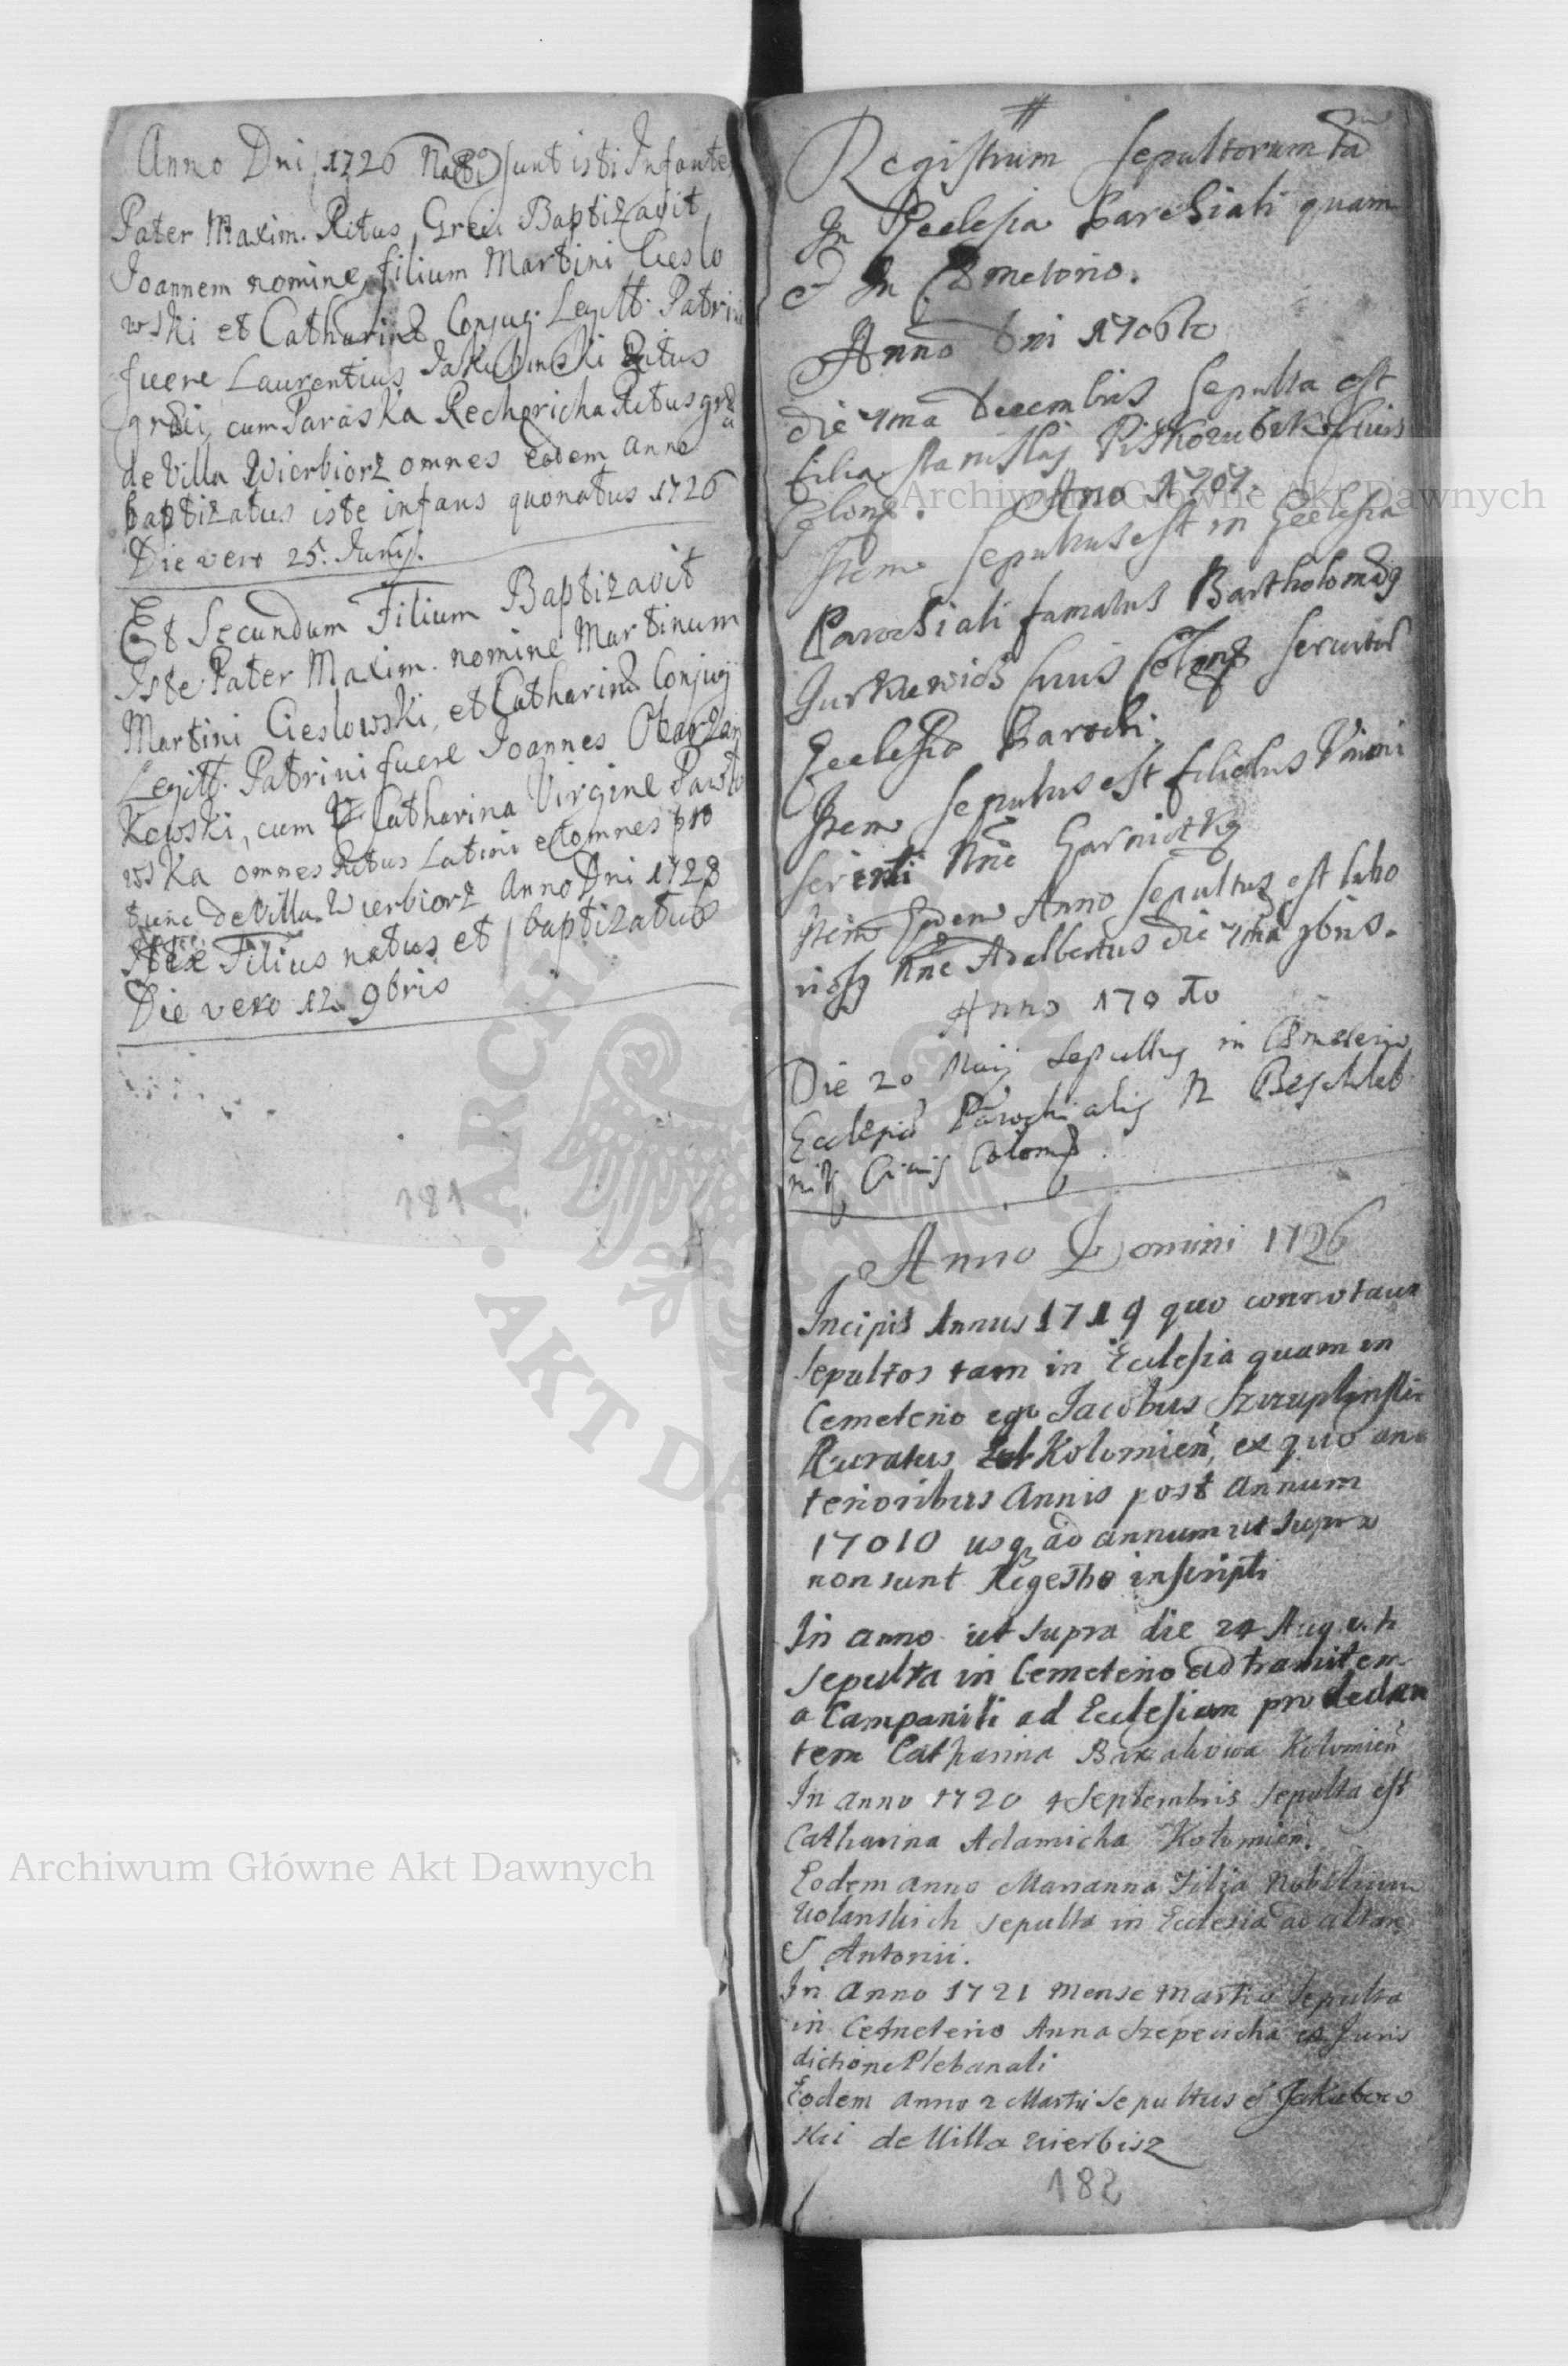 Anno Dni 1726 Nati sunt isti Infantes
Pater Maxim. Ritus Greci Baptizavit
Joannem nomine, filium Martini Cieslo
wski et Catharinæ Conjug. Legitt. Patrini
fuere Laurentius Jakubinski Ritus
græci, cum Paraska Rechoricha Ritus græ
de Villa Wierbiorz omnes eodem anno
baptizatus iste infans quo natus 1726
Die vero 25. Junij.
Et Secundum Filium Baptizavit
Iste Pater Maxim. nomine Martinum
Martini Cieslowski, et Catharinæ Conjug
Legitt. Patrini fuere Joannes Obarzan
Kowski, cum Catharina Virgine Pawlo
wska omnes Ritus Latini et omnes pro
tunc de Villa Wierbiorz Anno Dni 1728
Filius natus et baptizatus
Die vero 12. 9bris
181
Registrum sepultorum tam
In Ecclesia Parochiali quam
et In Cæmeterio.
Anno Dni 1706to
die 4ma Decembris sepulta est
filia Stanislaj Piskozubski Civis
Colom. Ano 1707.
Item sepultus est in Ecclesia
Parochiali famatus Bartholomæg
Jurkiewich Civis Colom servitor
Ecclesiæ Parochi.
Item sepultus est filiolus
nne Garniatkz
Item Eodem Anno sepultus est labo
riosg nne Adalbertus die 4ma 9bris.
Anno 170 to
Die 20 Maij sepultus in Cæmeterio
Ecclesiæ Parochialis N
Civis Colom.
Anno Domini 1726
Incipit Annus 1719 quo connotavi
sepultos tam in Ecclesia quam in
Cemeterio ego Jacobus
Curatus Kolomien, ex quo an
terioribus Annis post annum
17010 usq ad annum ut supra
non sunt Regestro inscripti
In anno ut supra die 24 Augusti
sepulta in Cemeterio ad tramitem
a Campanili ad Ecclesiam
tem Catharina Kolomien
In anno 1720 4 Septembris sepulta est
Catharina Adamicha Kolomien.
Eodem anno Marianna Filia Nobilium
Wolanskich sepulta in Ecclesia ad altare
S Antonii.
In Anno 1721 Mense Martio sepulta
in Cemeterio Anna ex Juris
dictione Plebanali
Eodem anno 2 Martii sepultus est Jakubow
ski de Villa Wierbisz
182
Archiwum Główne Akt Dawnych
Archiwum Główne Akt Dawnych